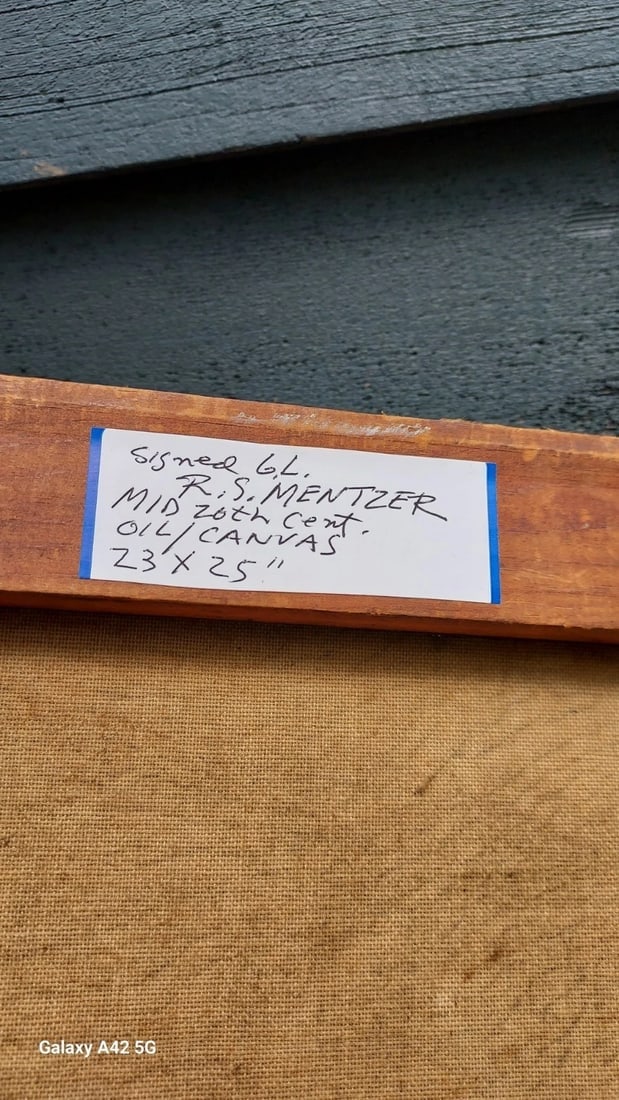 Signed G.L.
R.S. MENTZER
MID 20th Cent.
OIL/CANVAS
23 X 25"
Galaxy A42 5G